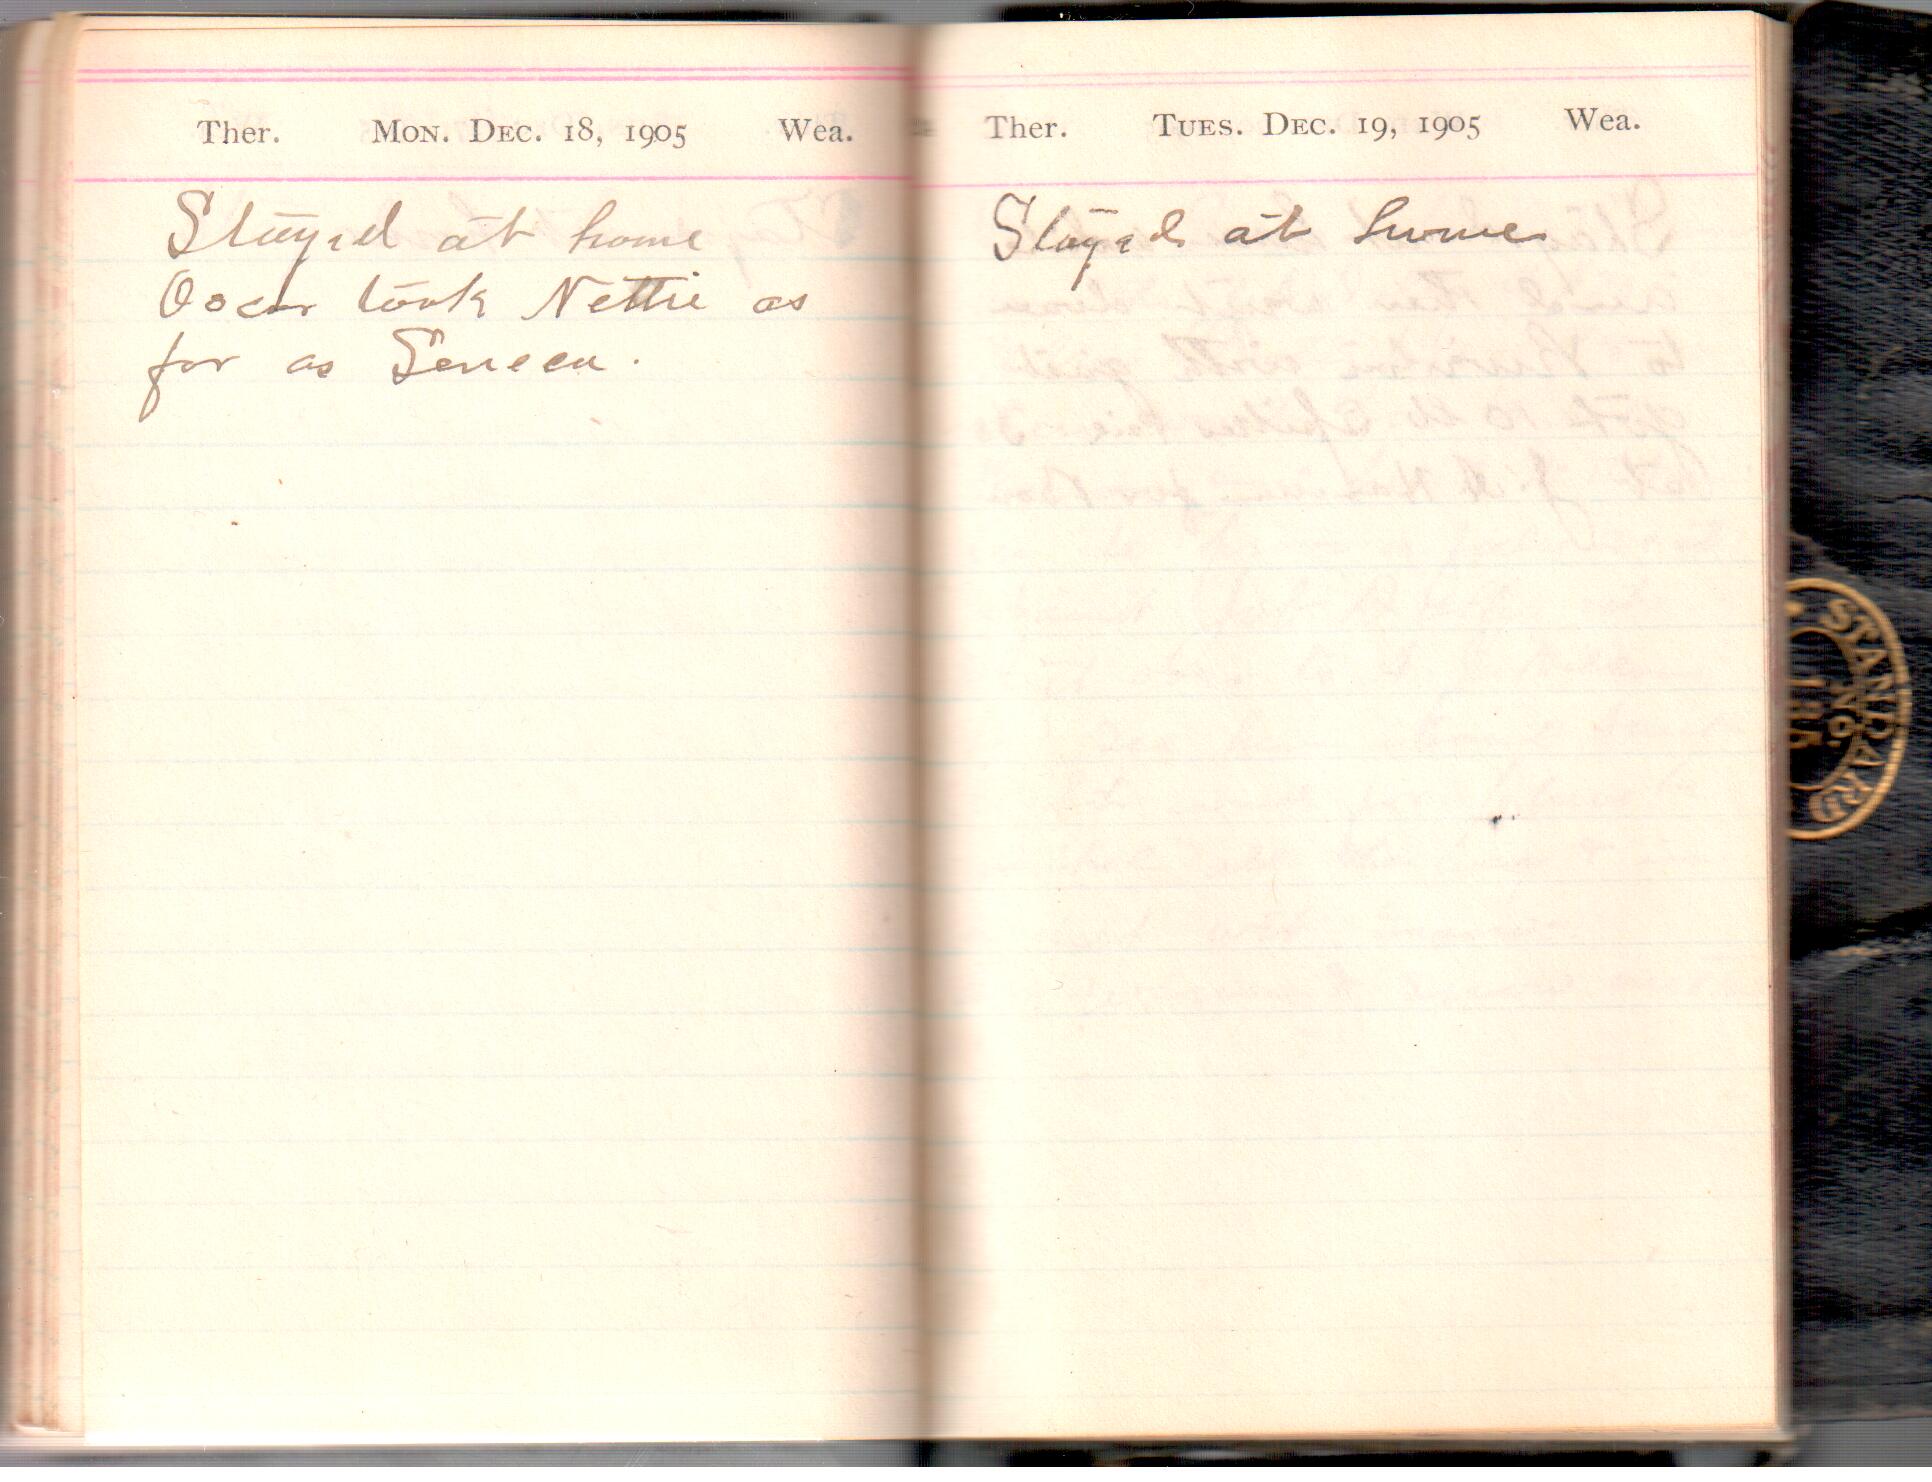 Ther. Mon. Dec. 18, 1905 Wea.
Stayed at home
Oscar took Nettie as
far as Seneca.
Ther. Tues. Dec. 19, 1905 Wea.
Stayed at home
STANDARD
No.